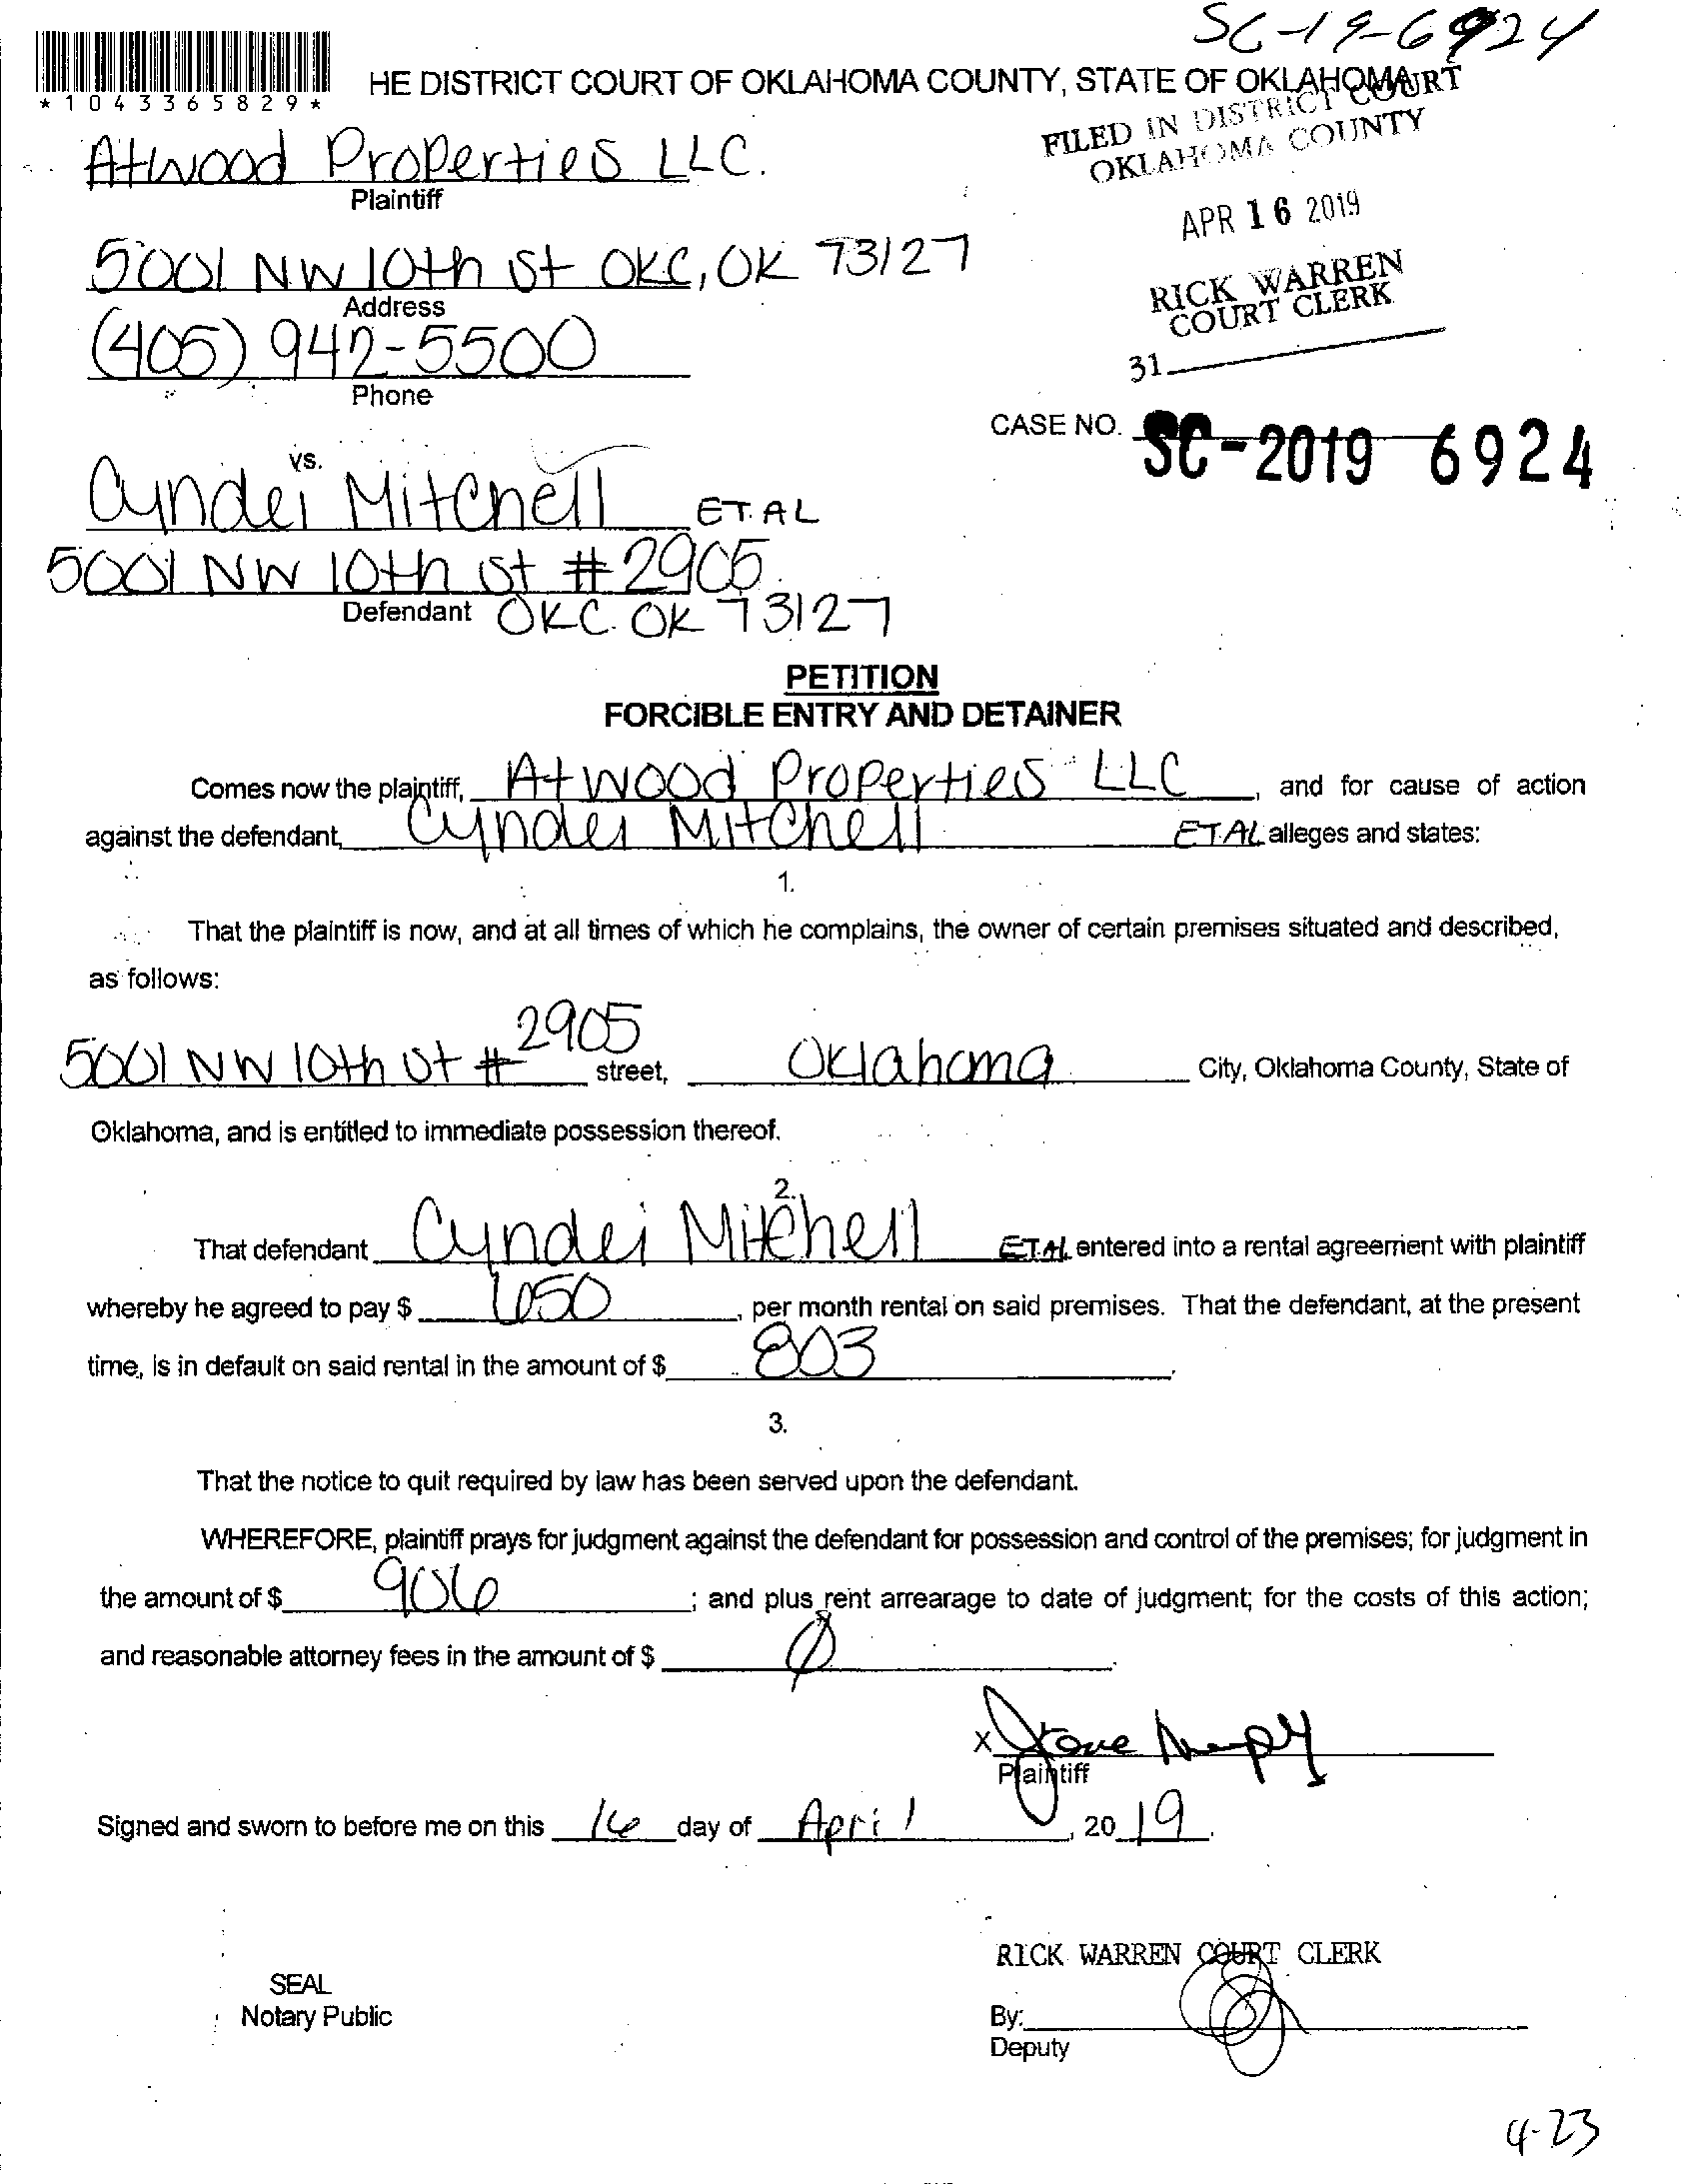 SC-19-6924
*1043365829*
HE DISTRICT COURT OF OKLAHOMA COUNTY, STATE OF OKLAHOMA
FILED IN DISTRICT COURT
OKLAHOMA COUNTY
Atwood Properties LLC.
Plaintiff
APR 16 2019
5001 NW 10th St OKC, OK 73127
Address
RICK WARREN
COURT CLERK
(405) 942-5500
Phone
31
CASE NO. SC-2019 6924
vs.
Cyndei Mitchell ET.AL
5001 NW 10th St #2905
Defendant OKC. OK 73127
PETITION
FORCIBLE ENTRY AND DETAINER
Comes now the plaintiff, Atwood Properties LLC, and for cause of action
against the defendant, Cyndei Mitchell ET.AL alleges and states:
1.
That the plaintiff is now, and at all times of which he complains, the owner of certain premises situated and described,
as follows:
5001 NW 10th St # 2905 street, Oklahoma City, Oklahoma County, State of
Oklahoma, and is entitled to immediate possession thereof.
2.
That defendant Cyndei Mitchell ET.AL entered into a rental agreement with plaintiff
whereby he agreed to pay $ 650, per month rental on said premises. That the defendant, at the present
time, is in default on said rental in the amount of $ 803.
3.
That the notice to quit required by law has been served upon the defendant.
WHEREFORE, plaintiff prays for judgment against the defendant for possession and control of the premises; for judgment in
the amount of $ 906; and plus rent arrearage to date of judgment; for the costs of this action;
and reasonable attorney fees in the amount of $ Ø.
X
Plaintiff
Signed and sworn to before me on this 16 day of April, 20 19.
RICK WARREN COURT CLERK
SEAL
Notary Public
By:
Deputy
4-23